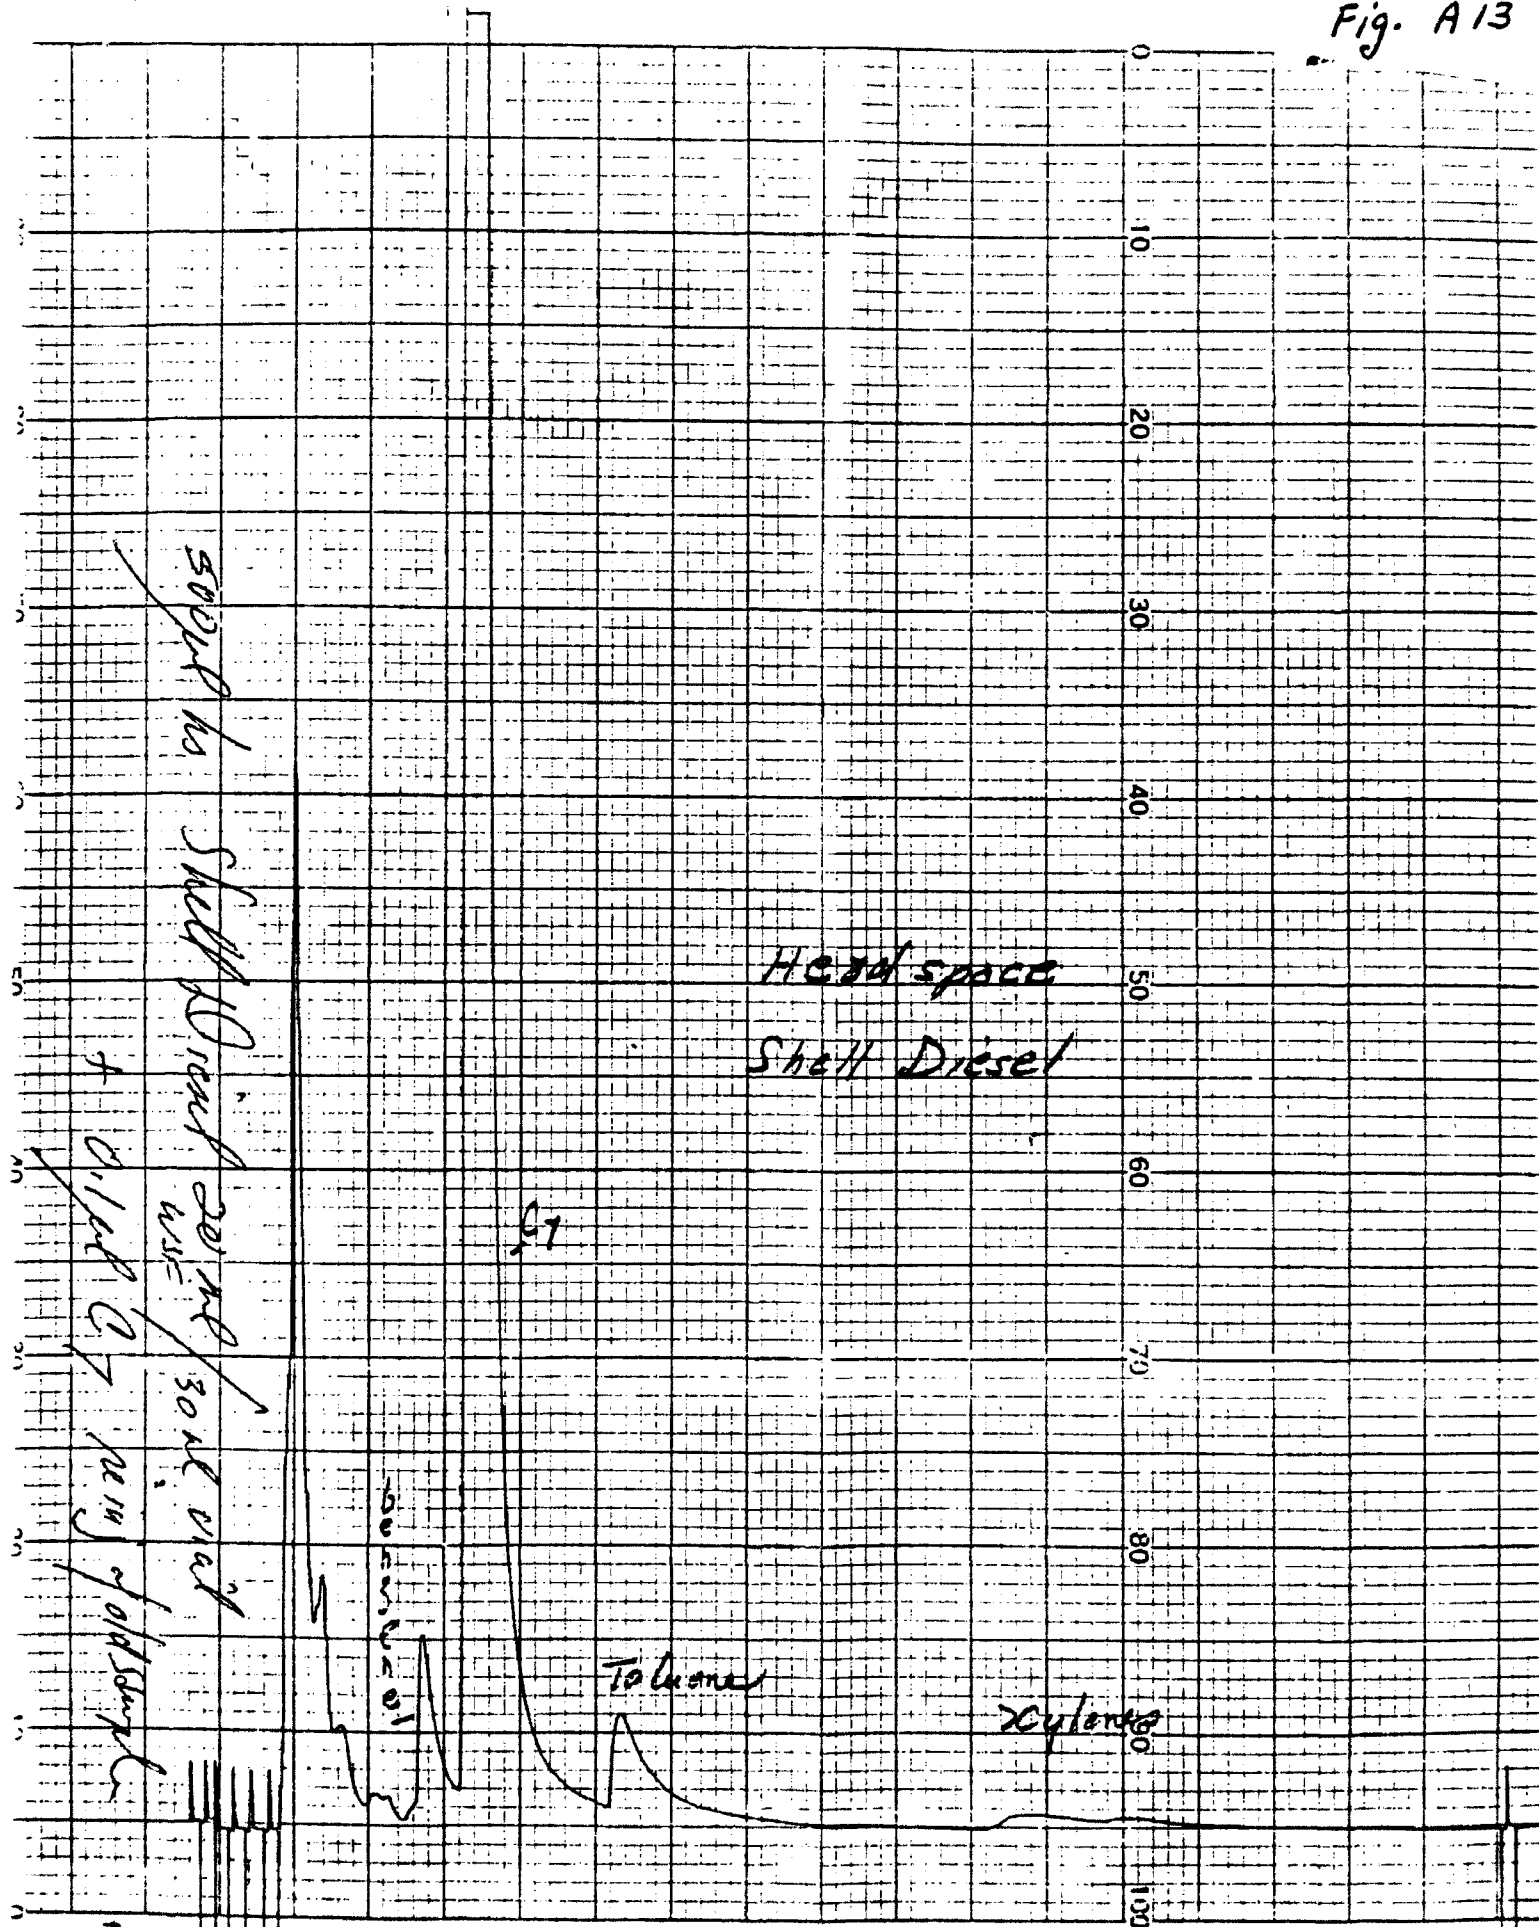 Fig. A 13
0
10
20
30
40
50
60
70
80
90
100
Head space
Shell Diesel
C7
Toluene
Xylenes
500µl hs Shell Diesel 20 ml / 30 ml vial
WSF
+ 0.1µl C7 rerun of old sample